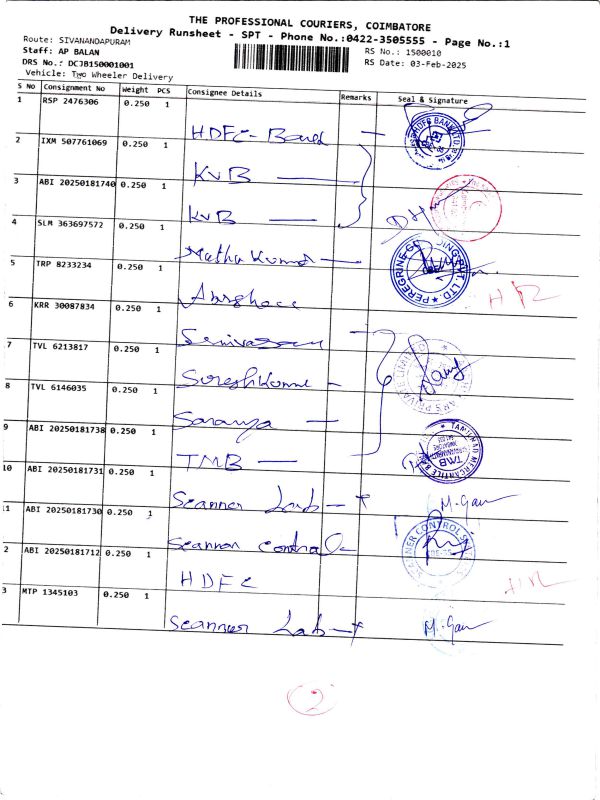 THE PROFESSIONAL COURIERS, COIMBATORE
Delivery Runsheet - SPT - Phone No.:0422-3505555 - Page No.:1
Route: SIVANANDAPURAM
RS No.: 1500010
Staff: AP BALAN
RS Date: 03-Feb-2025
DRS No.: DCJB150001001
Vehicle: Two Wheeler Delivery
S No Consignment No Weight PCS Consignee Details Remarks Seal & Signature
1 RSP 2476306 0.250 1 HDFC-Band
2 IXM 507761069 0.250 1 KVB
3 ABI 20250181740 0.250 1 KVB
4 SLM 363697572 0.250 1 Mathu Kumar
5 TRP 8233234 0.250 1
6 KRR 30087834 0.250 1 Srinivasan
7 TVL 6213817 0.250 1 Suresh Kumar
8 TVL 6146035 0.250 1 Saranya
9 ABI 20250181738 0.250 1 TMB
10 ABI 20250181731 0.250 1 Scanner Lab M. Gau
1 ABI 20250181730 0.250 1 Scanner control
2 ABI 20250181712 0.250 1 HDFC
3 MTP 1345103 0.250 1 Scanner Lab M. Gau
2